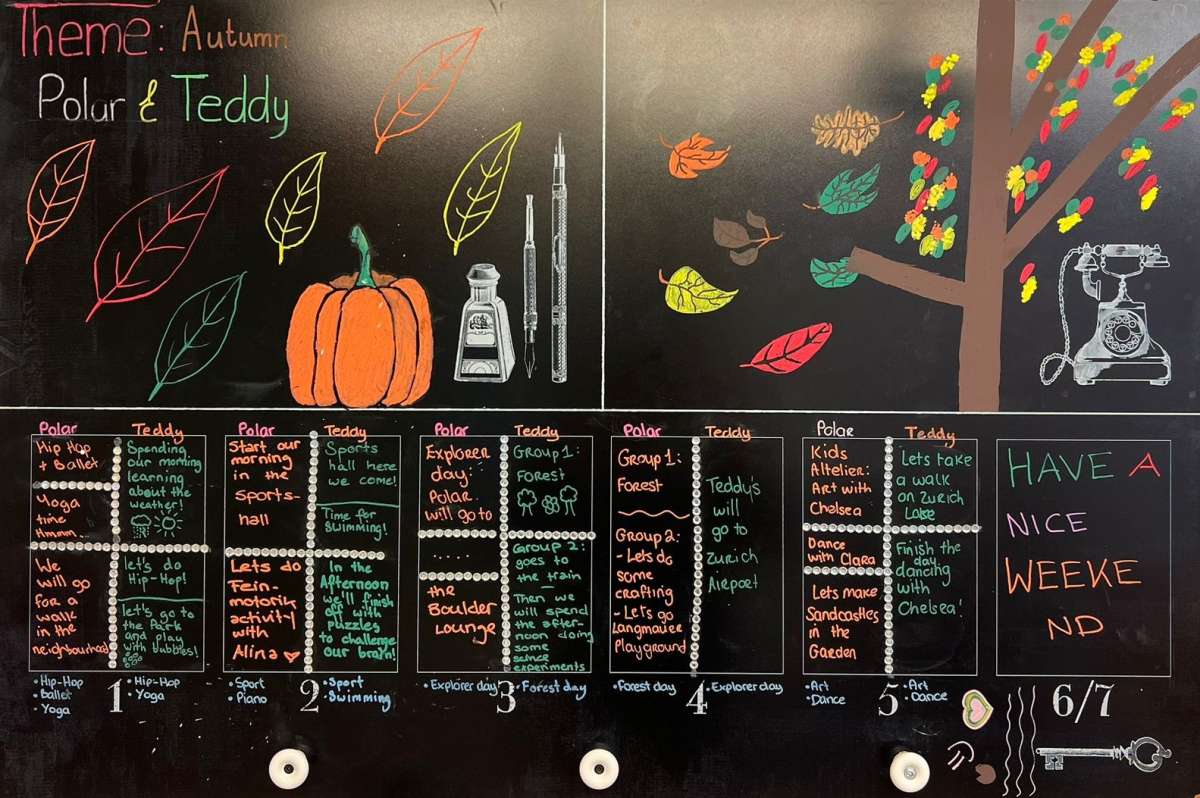 Theme: Autumn
Polar & Teddy
Polar
Hip Hop
+ Ballet
Yoga
time
Hmmm..
We
will go
for a
walk
in the
neighbourhood
Teddy
Spending
our morning
learning
about the
weather!
let's do
Hip-Hop!
let's go to
the Park
and play
with bubbles!
• Hip-Hop
• Ballet
• Yoga
1
• Hip-Hop
• Yoga
Polar
Start our
morning
in the
sports-
hall
Lets do
Fein-
motorik
activity
with
Alina
Teddy
Sports
hall here
we come!
Time for
swimming!
In the
Afternoon
we'll finish
off with
puzzles
to challenge
our brain!
• Sport
• Piano
2
• Sport
• Swimming
Polar
Explorer
day:
Polar
will go to
.....
the
Boulder
Lounge
Teddy
Group 1:
Forest
Group 2:
goes to
the train
Then we
will spend
the after-
noon doing
some
science
experiments
• Explorer day
3
• Forest day
Polar
Group 1:
Forest
Group 2:
- Lets do
some
crafting
- Let's go
Langmauer
Playground
Teddy
Teddy's
will
go to
Zurich
Airport
• Forest day
4
• Explorer day
Polar
Kids
Altelier:
Art with
Chelsea
Dance
with Clara
Lets make
Sandcastles
in the
Garden
Teddy
Lets take
a walk
on Zurich
Lake
Finish the
day
dancing
with
Chelsea!
• Art
• Dance
5
• Art
• Dance
HAVE A
NICE
WEEKE
ND
6/7